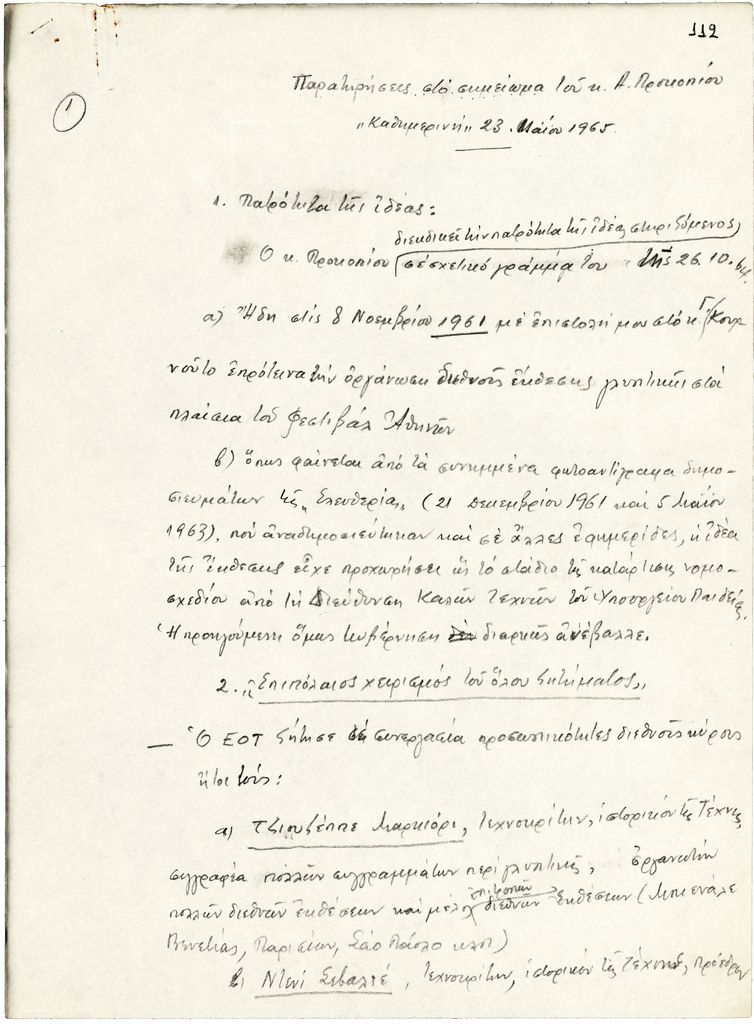 112
1
Παρατηρήσεις στό σημείωμα τοῦ κ. Α. Προκοπίου
"Καθημερινή" 23 Μαΐου 1965
1. Πατρότητα τῆς ἰδέας:
διεκδικεῖ τήν πατρότητα τῆς ἰδέας στηριζόμενος
Ο κ. Προκοπίου σέ σχετικό γράμμα του τῆς 26.10.64.
α) Ἤδη στίς 8 Νοεμβρίου 1961 μέ ἐπιστολή μου στό κ. Γ/Κουρ
νοῦτο ἐπρότεινα τήν ὀργάνωση διεθνοῦς ἐκθέσης γλυπτικῆς στά
πλαίσια τοῦ Φεστιβάλ Ἀθηνῶν
β) ὅπως φαίνεται ἀπό τά συνημμένα φωτοαντίγραφα δημο-
σιευμάτων τῆς "Ἐλευθερίας" (21 Δεκεμβρίου 1961 καί 5 Μαΐου
1963), πού ἀναδημοσιεύτηκαν καί σέ ἄλλες ἐφημερίδες, ἡ ἰδέα
τῆς ἐκθεσης εἶχε προχωρήσει ὡς τό στάδιο τῆς κατάρτισης νομο-
σχεδίου ἀπό τή Διεύθυνση Καλῶν Τεχνῶν τοῦ Ὑπουργείου Παιδείας.
Ἡ προηγούμενη ὅμως κυβέρνηση διαρκῶς ἀνέβαλλε.
2. "Ἐπιπόλαιος χειρισμός τοῦ ὅλου ζητήματος"
— Ὁ ΕΟΤ ζήτησε τή συνεργασία προσωπικότητες διεθνοῦς κύρους
ἤτοι τούς:
α) Τζιουζέππε Μαρκιόρι, τεχνοκρίτην, ἱστορικόν τῆς Τέχνης,
συγγραφέα πολλῶν συγγραμμάτων περί γλυπτικῆς, ὀργανωτήν
ἐπιτροπῶν
πολλῶν διεθνῶν ἐκθέσεων καί μέλος διεθνῶν ἐκθέσεων (Μπιενάλε
Βενετίας, Παρισίων, Σάο Πάολο κλπ)
β) Ντενί Σεβαλιέ, τεχνοκρίτην, ἱστορικόν τῆς τέχνης, πρόεδρον